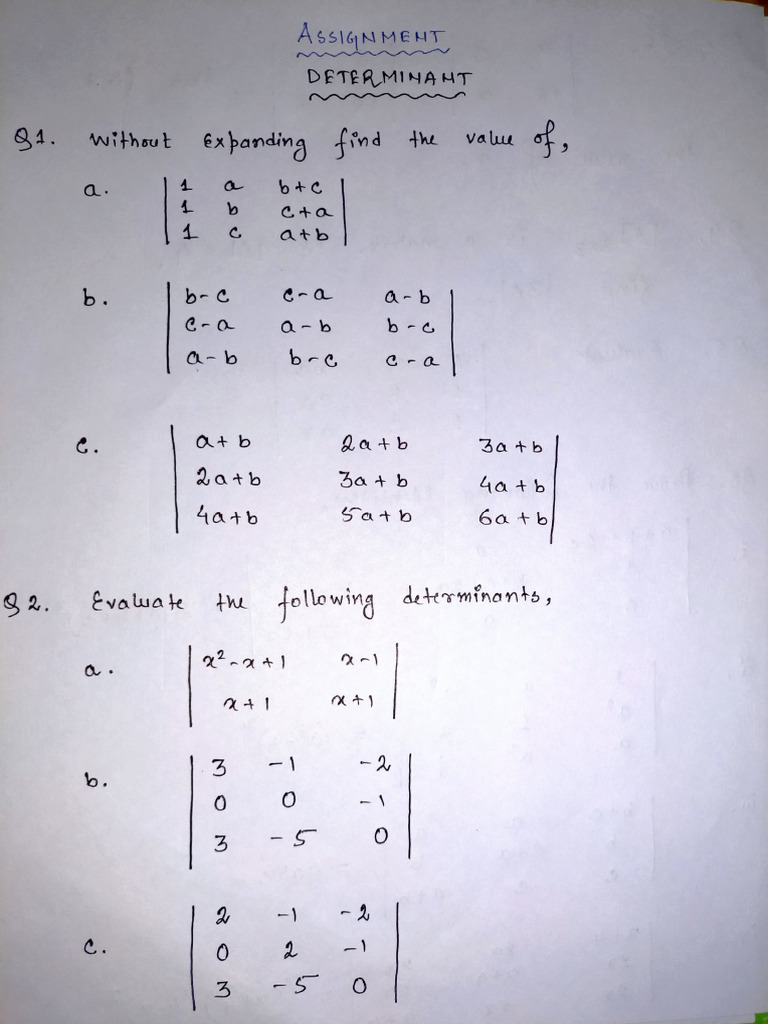 ASSIGNMENT
DETERMINANT
Q1. Without Expanding find the value of,
a. | 1 a b+c |
| 1 b c+a |
| 1 c a+b |
b. | b-c c-a a-b |
| c-a a-b b-c |
| a-b b-c c-a |
c. | a+b 2a+b 3a+b |
| 2a+b 3a+b 4a+b |
| 4a+b 5a+b 6a+b |
Q2. Evaluate the following determinants,
a. | x²-x+1 x-1 |
| x+1 x+1 |
b. | 3 -1 -2 |
| 0 0 -1 |
| 3 -5 0 |
c. | 2 -1 -2 |
| 0 2 -1 |
| 3 -5 0 |